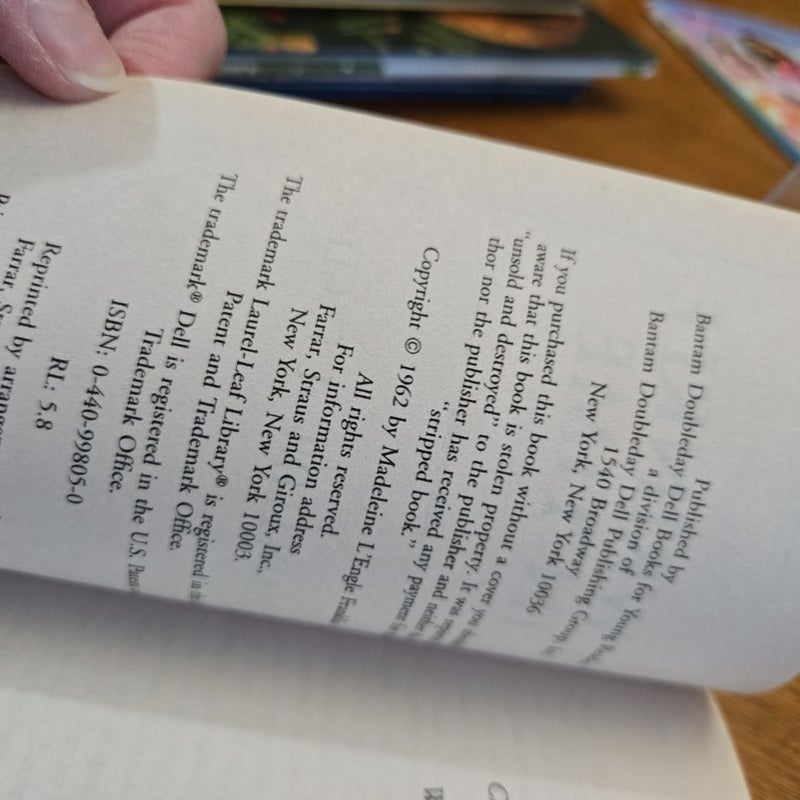 Published by
Bantam Doubleday Dell Books for Young
a division of
Bantam Doubleday Dell Publishing Group,
1540 Broadway
New York, New York 10036
If you purchased this book without a cover you
aware that this book is stolen property. It was
"unsold and destroyed" to the publisher and neither
thor nor the publisher has received any payment
"stripped book."
Copyright © 1962 by Madeleine L'Engle
All rights reserved.
For information address
Farrar, Straus and Giroux, Inc.,
New York, New York 10003.
The trademark Laurel-Leaf Library® is registered in
Patent and Trademark Office.
The trademark® Dell is registered in the U.S.
Trademark Office.
ISBN: 0-440-99805-0
RL: 5.8
Reprinted by
Farrar,